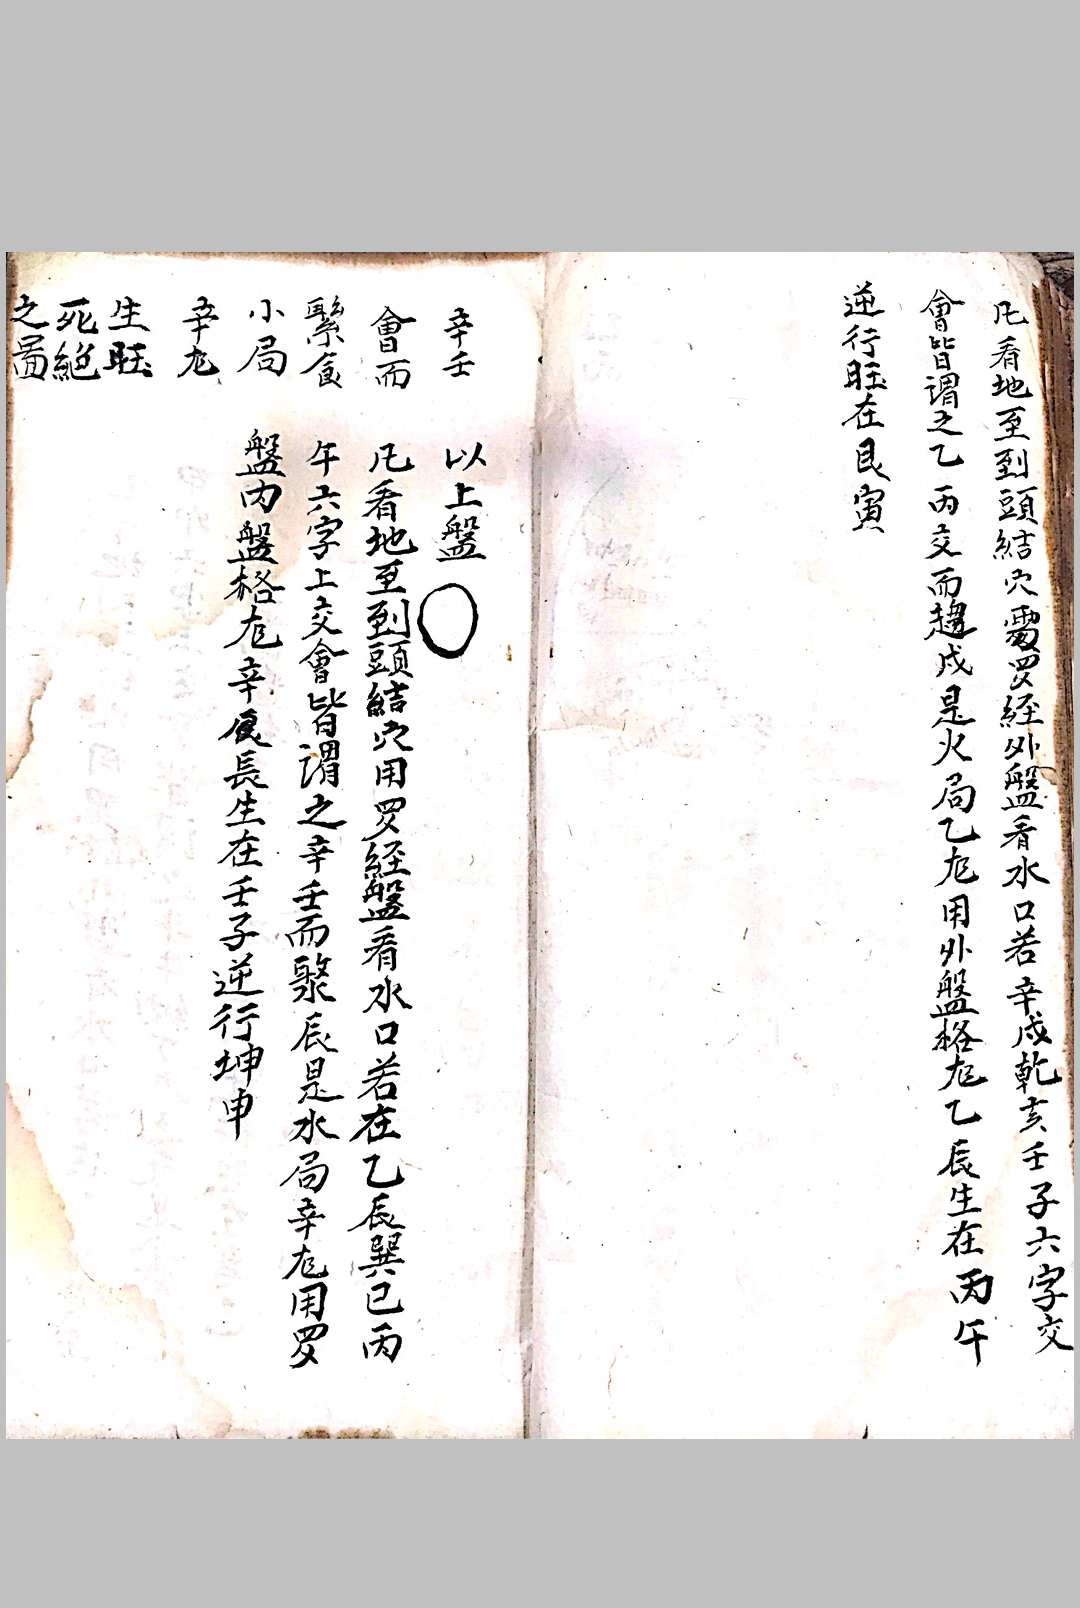 凡看地至到頭結穴需罗経外盤看水口若辛戌乾亥壬子六字交
會皆谓之乙丙交而趨戍是火局乙尨用外盤格尨乙辰生在丙午
逆行旺在艮寅
辛壬
會而
聚食
小局
辛尨
生旺
死絕
之圖
以上盤〇
凡看地至到頭結穴用罗経盤看水口若在乙辰巽巳丙
午六字上交會皆谓之辛壬而聚辰是水局辛尨用罗
盤内盤格尨辛長生在壬子逆行坤申